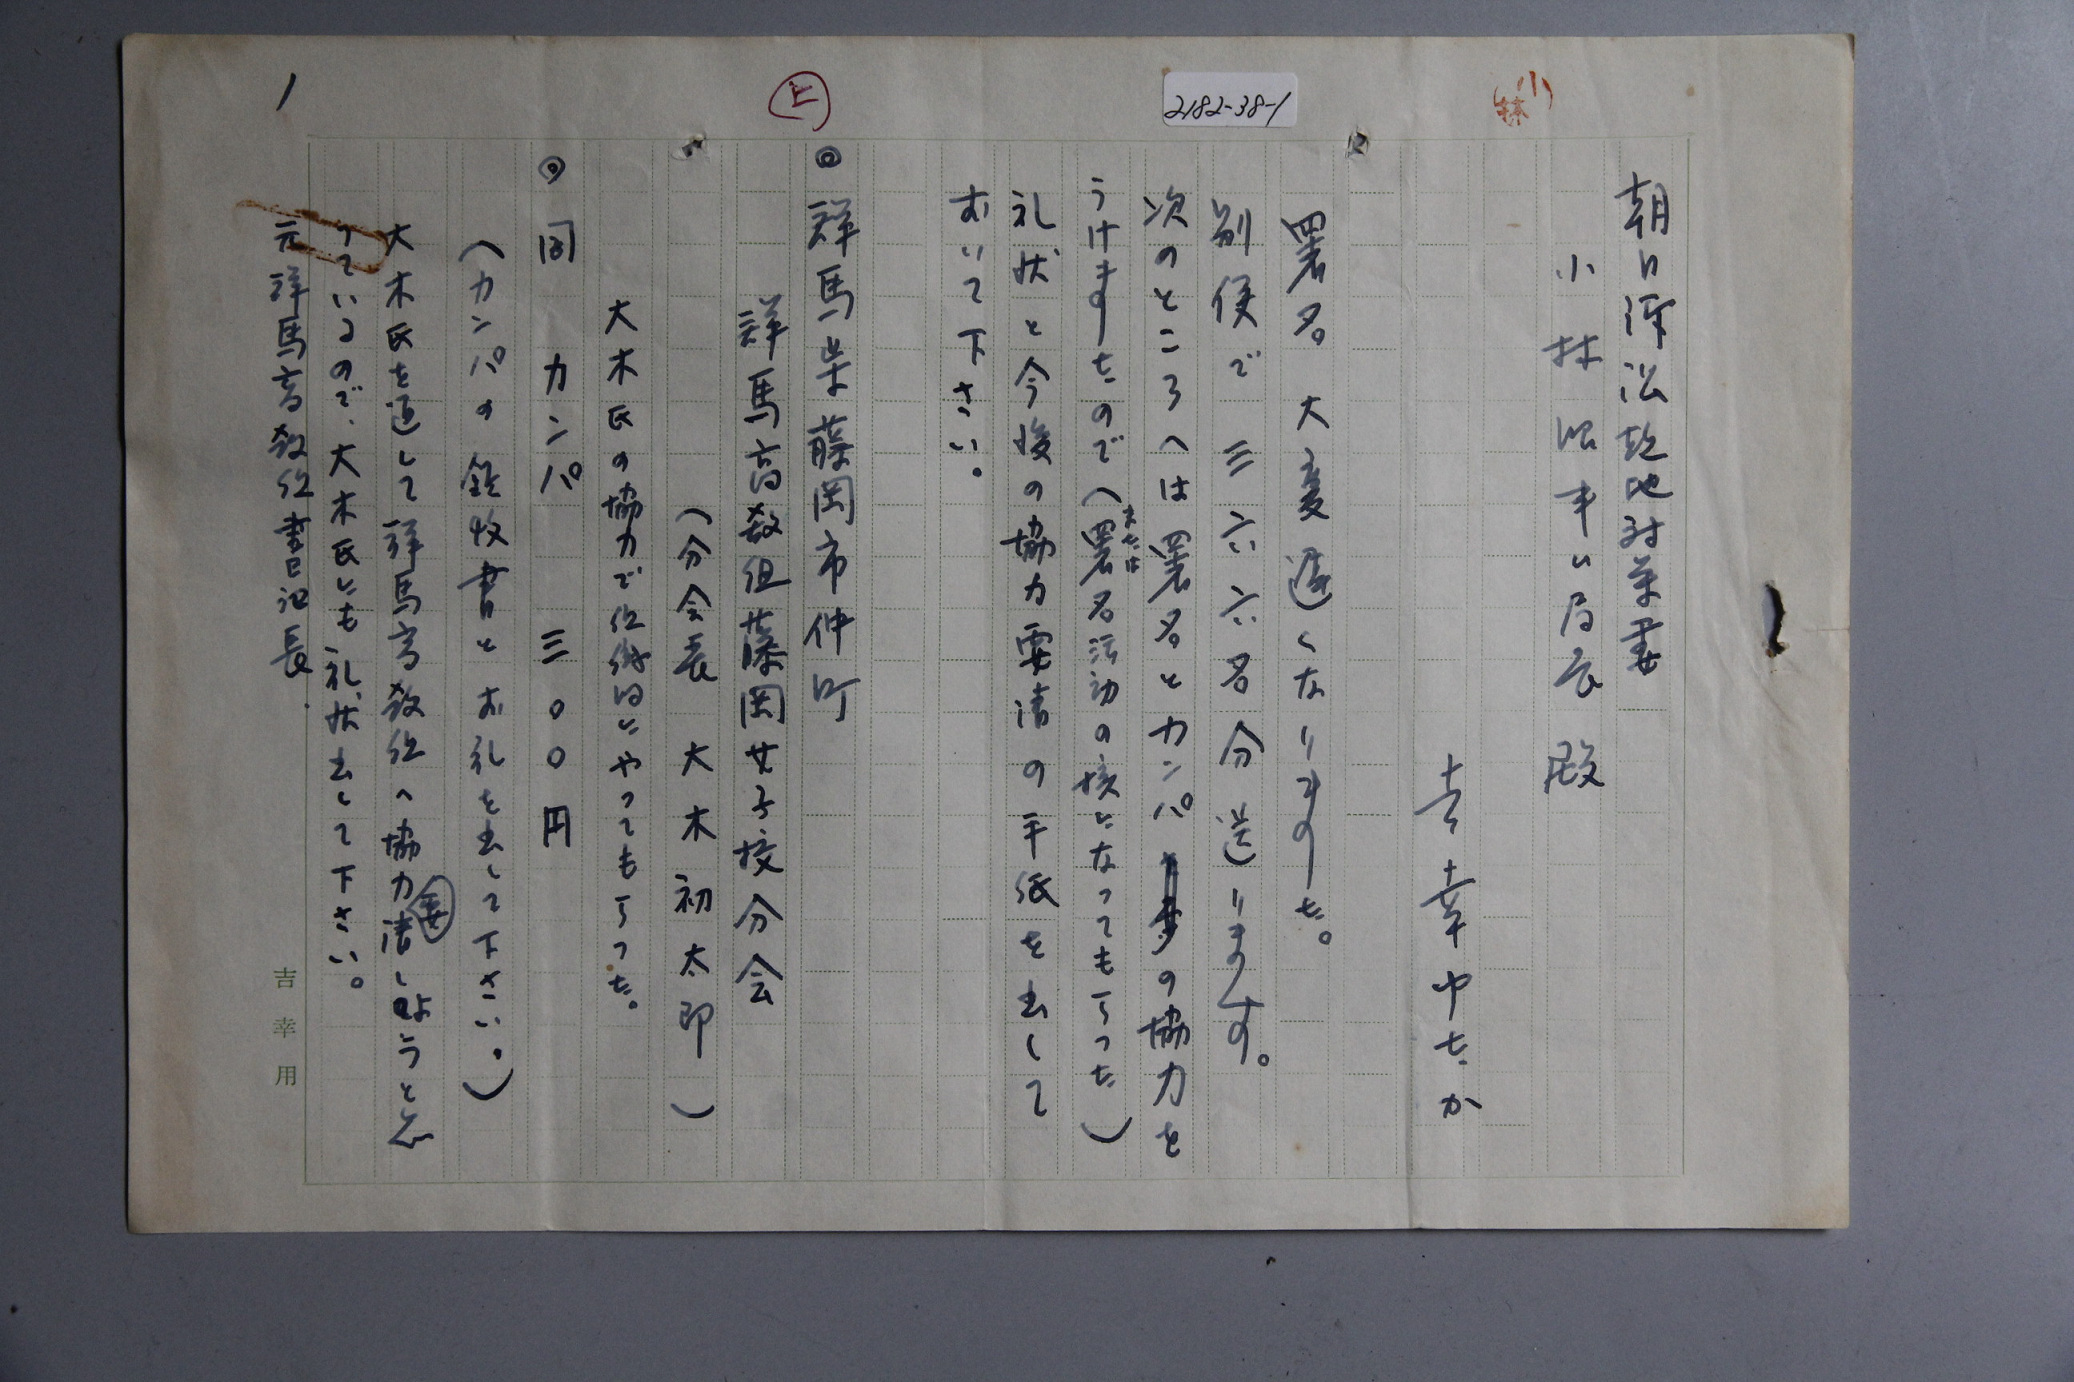 1
上
2182-38-1
小林
朝日訴訟
小林 事ム局長殿
吉幸やたか
署名 大変遅くなりました。
別便で三六六名分送ります。
次のところへは署名とカンパの協力を
うけましたので(署名活動の核になってもらった)
または
礼状と今後の協力要請の手紙を出して
おいて下さい。
◎群馬県藤岡市仲町
群馬高教組藤岡女子校分会
(分会長 大木初太郎)
大木氏の協力で組織的にやってもらった。
◎同 カンパ 三〇〇円
(カンパの領収書とお礼を出して下さい。)
大木氏を通して群馬高教組へ協力要請しようと思
っているので、大木氏にも礼状出して下さい。
元群馬高教組書記長.
吉幸用